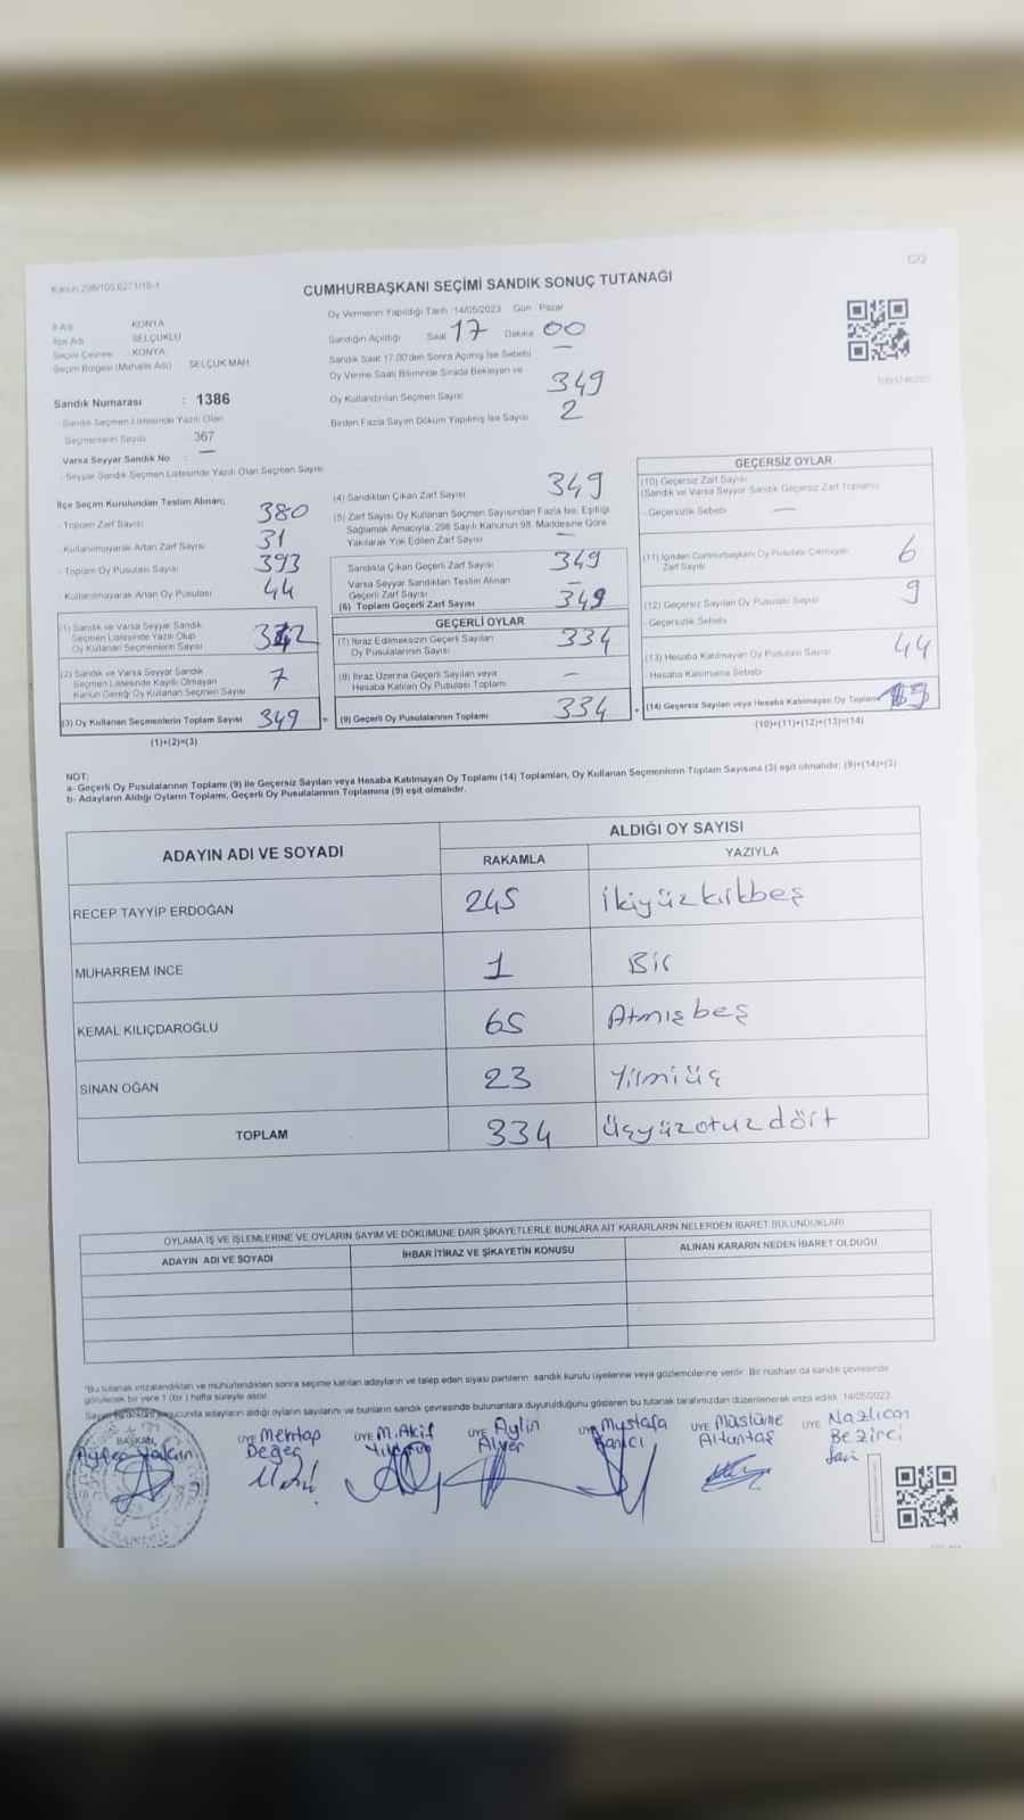 CUMHURBAŞKANI SEÇİMİ SANDIK SONUÇ TUTANAĞI
Oy Vermenin Yapıldığı Tarih :14/05/2023 Gün : Pazar
İl Adı KONYA
İlçe Adı SELÇUKLU
Seçim Çevresi KONYA
Seçim Bölgesi (Mahalle Adı) SELÇUK MAH
Sandığın Açıldığı Saat 17 Dakika 00
Sandık Saat 17.00'den Sonra Açılmış İse Sebebi —
Oy Verme Saati Bitiminde Sırada Bekleyen ve
Oy Kullandırılan Seçmen Sayısı 349
Birden Fazla Sayım Döküm Yapılmış İse Sayısı 2
Sandık Numarası : 1386
Sandık Seçmen Listesinde Yazılı Olan
Seçmenlerin Sayısı 367
Varsa Seyyar Sandık No : —
Seyyar Sandık Seçmen Listesinde Yazılı Olan Seçmen Sayısı
İlçe Seçim Kurulundan Teslim Alınan;
- Toplam Zarf Sayısı 380
- Kullanılmayarak Artan Zarf Sayısı 31
- Toplam Oy Pusulası Sayısı 393
- Kullanılmayarak Artan Oy Pusulası 44
(1) Sandık ve Varsa Seyyar Sandık
Seçmen Listesinde Yazılı Olup
Oy Kullanan Seçmenlerin Sayısı
(2) Sandık ve Varsa Seyyar Sandık
Seçmen Listesinde Kayıtlı Olmayan
Kanun Gereği Oy Kullanan Seçmen Sayısı 7
(3) Oy Kullanan Seçmenlerin Toplam Sayısı 349
(1)+(2)=(3)
(4) Sandıktan Çıkan Zarf Sayısı 349
(5) Zarf Sayısı Oy Kullanan Seçmen Sayısından Fazla İse, Eşitliği
Sağlamak Amacıyla, 298 Sayılı Kanunun 98. Maddesine Göre
Yakılarak Yok Edilen Zarf Sayısı —
Sandıkta Çıkan Geçerli Zarf Sayısı 349
Varsa Seyyar Sandıktan Teslim Alınan
Geçerli Zarf Sayısı —
(6) Toplam Geçerli Zarf Sayısı 349
GEÇERLİ OYLAR
(7) İtiraz Edilmeksizin Geçerli Sayılan
Oy Pusulalarının Sayısı 334
(8) İtiraz Üzerine Geçerli Sayılan veya
Hesaba Katılan Oy Pusulası Toplamı —
(9) Geçerli Oy Pusulalarının Toplamı 334
GEÇERSİZ OYLAR
(10) Geçersiz Zarf Sayısı
(Sandık ve Varsa Seyyar Sandık Geçersiz Zarf Toplamı)
- Geçersizlik Sebebi —
(11) İçinden Cumhurbaşkanı Oy Pusulası Çıkmayan
Zarf Sayısı 6
(12) Geçersiz Sayılan Oy Pusulası Sayısı 9
- Geçersizlik Sebebi
(13) Hesaba Katılmayan Oy Pusulası Sayısı 44
Hesaba Katılmama Sebebi
(14) Geçersiz Sayılan veya Hesaba Katılmayan Oy Toplamı
(10)+(11)+(12)+(13)=(14)
NOT:
a- Geçerli Oy Pusulalarının Toplamı (9) ile Geçersiz Sayılan veya Hesaba Katılmayan Oy Toplamı (14) Toplamları, Oy Kullanan Seçmenlerin Toplam Sayısına (3) eşit olmalıdır. (9)+(14)=(3)
b- Adayların Aldığı Oyların Toplamı, Geçerli Oy Pusulalarının Toplamına (9) eşit olmalıdır.
ADAYIN ADI VE SOYADI ALDIĞI OY SAYISI
RAKAMLA YAZIYLA
RECEP TAYYİP ERDOĞAN 245 İkiyüzkırkbeş
MUHARREM İNCE 1 Bir
KEMAL KILIÇDAROĞLU 65 Atmışbeş
SİNAN OĞAN 23 Yirmiüç
TOPLAM 334 Üçyüzotuzdört
OYLAMA İŞ VE İŞLEMLERİNE VE OYLARIN SAYIM VE DÖKÜMÜNE DAİR ŞİKAYETLERLE BUNLARA AİT KARARLARIN NELERDEN İBARET BULUNDUKLARI
ADAYIN ADI VE SOYADI İHBAR İTİRAZ VE ŞİKAYETİN KONUSU ALINAN KARARIN NEDEN İBARET OLDUĞU
*Bu tutanak imzalandıktan ve mühürlendikten sonra seçime katılan adayların ve talep eden siyasi partilerin sandık kurulu üyelerine veya gözlemcilerine verilir. Bir nüshası da sandık çevresinde
görülecek bir yere 1 (bir) hafta süreyle asılır.
sonucunda adayların aldığı oyların sayılarını ve bunların sandık çevresinde bulunanlara duyurulduğunu gösteren bu tutanak tarafımızdan düzenlenerek imza edildi. 14/05/2023
BAŞKAN ÜYE Mehtap ÜYE M.Akif ÜYE Aylin ÜYE Mustafa ÜYE Müslüme ÜYE Nazlıcan
Değer Alıntaş Bezirci